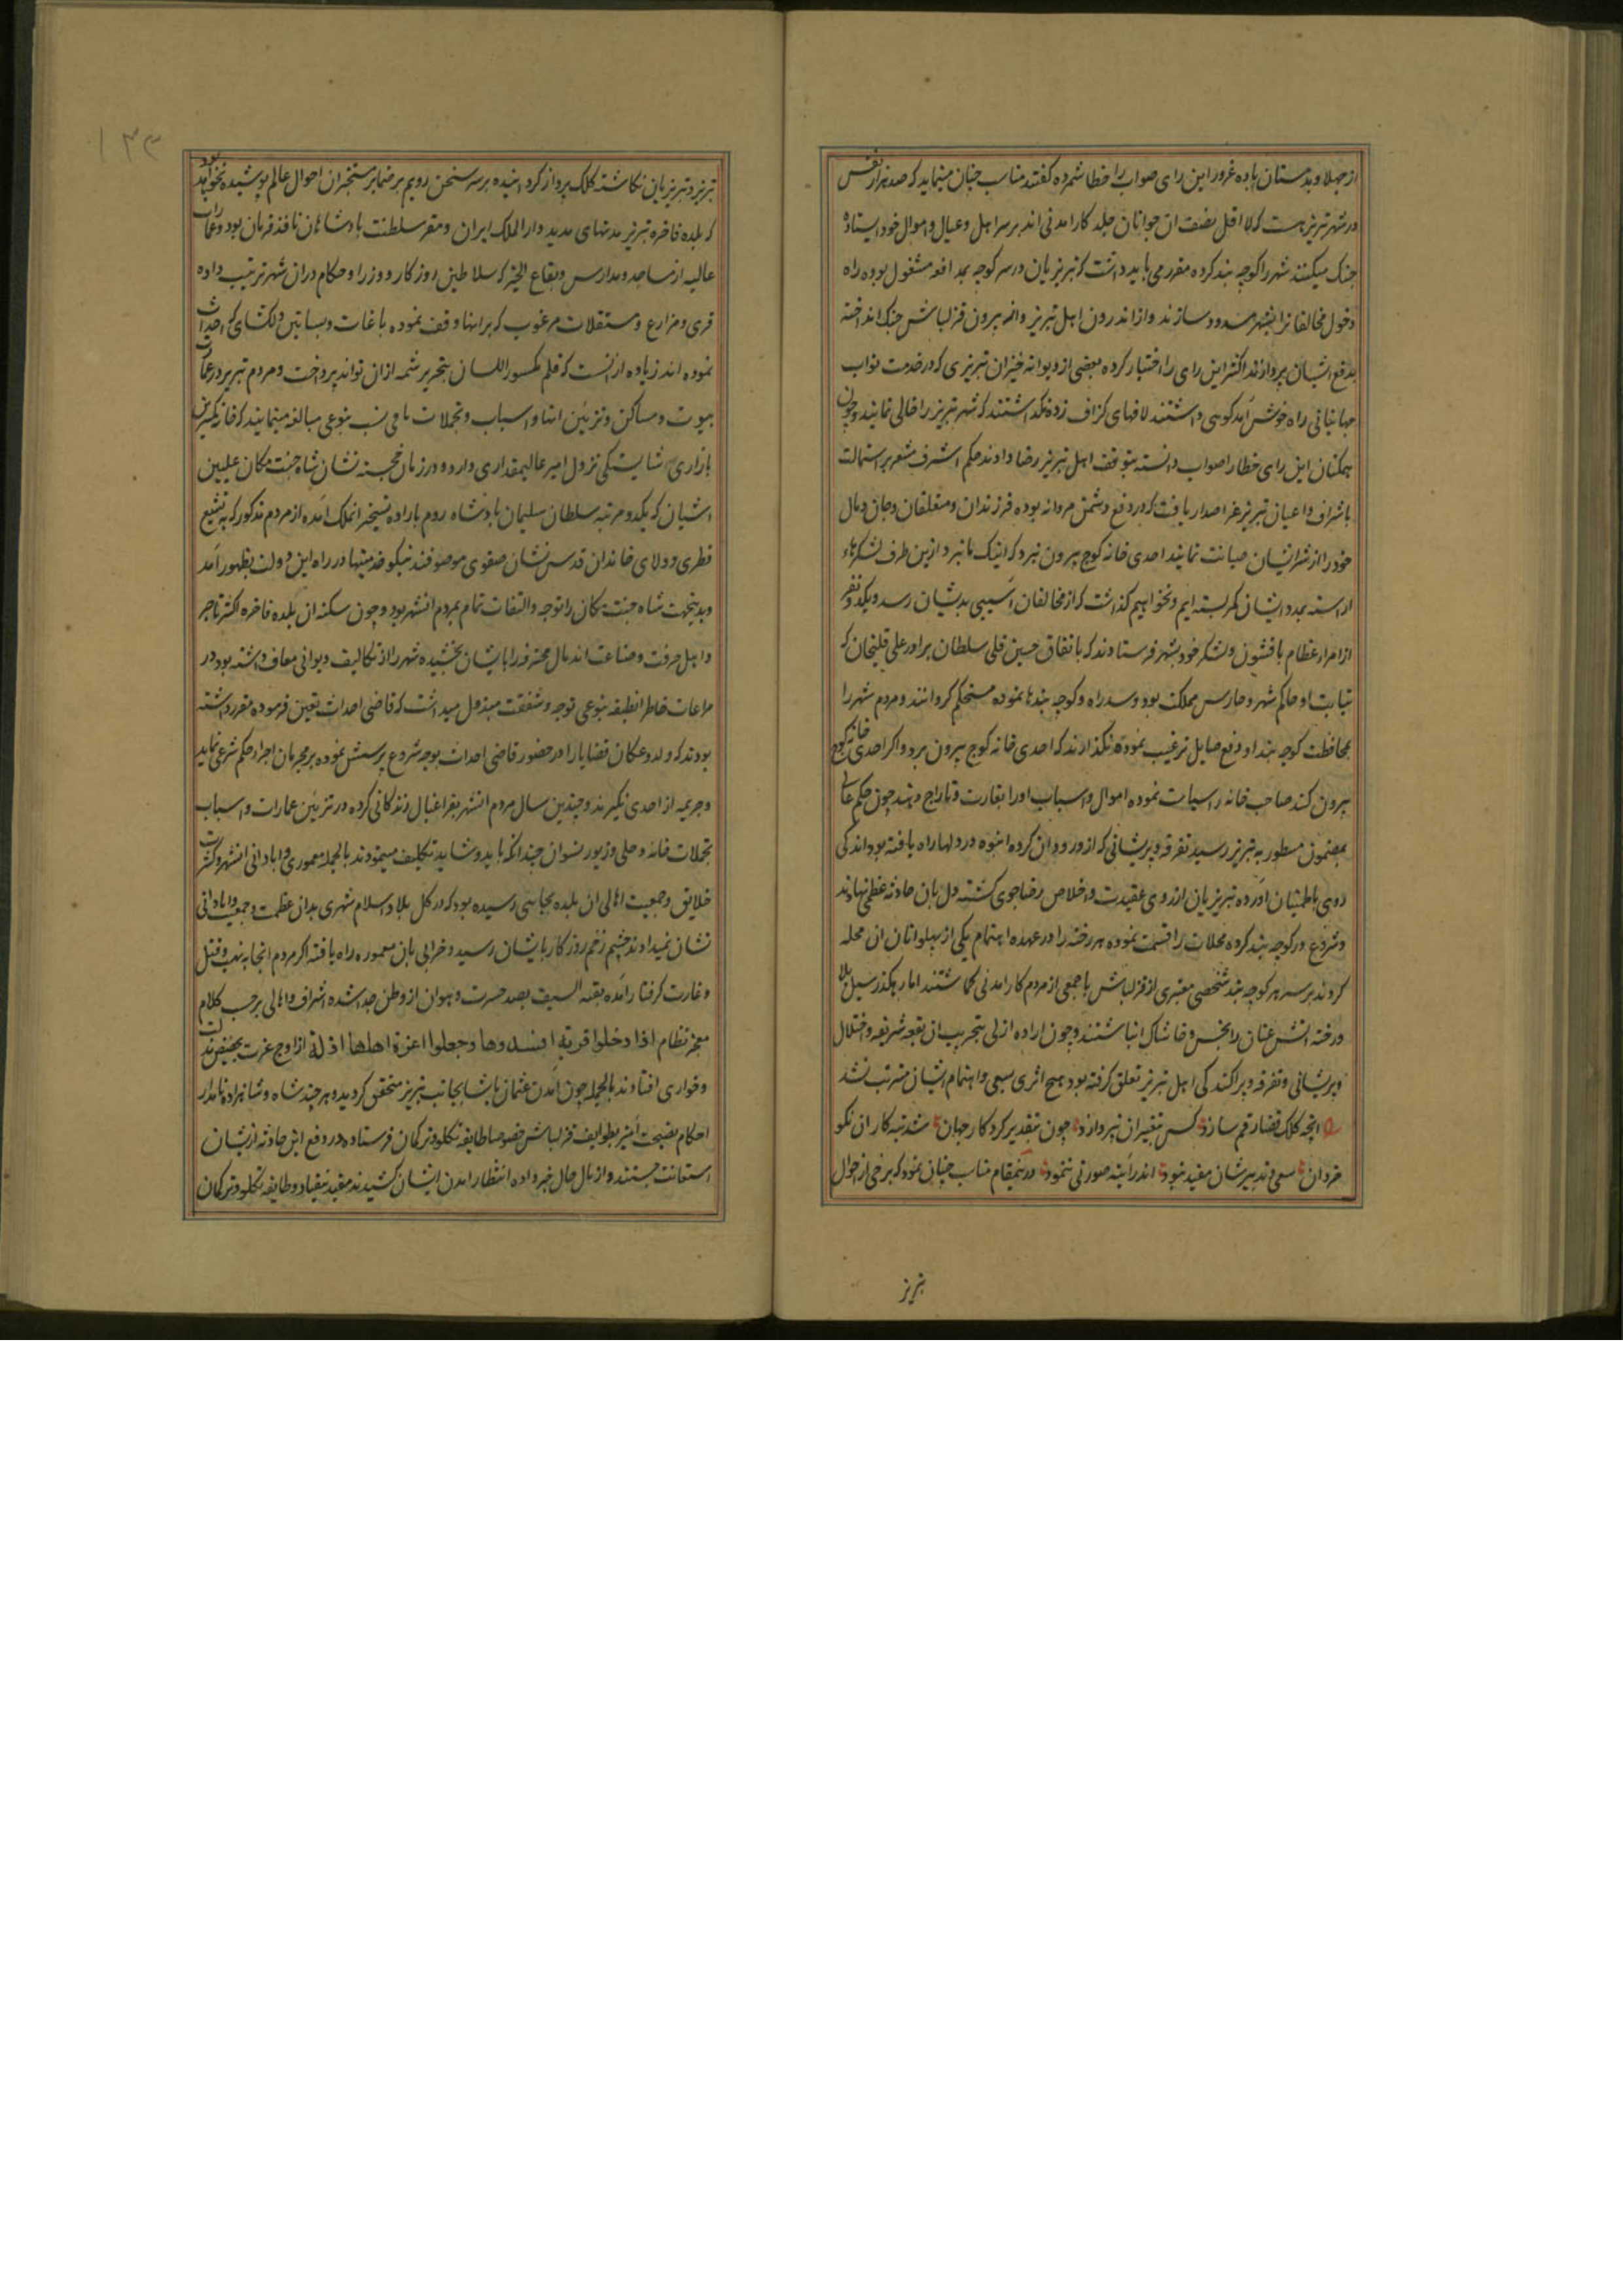 از جهلا و بدمستان باده غرور این رای صواب را خطا شمرده گفتند مناسب چنان مینماید که صد هزار نفس
در شهر تبریز هست که لااقل نصف ان جوانان جلد کارامدنی اند بر سر اهل و عیال و اموال خود ایستاده
جنک میکنند شهر را کوچه بند کرده مقرر می باید داشت که تبریزیان در سر کوچه بمدافعه مشغول بوده راه
دخول مخالفانرا بشهر مسدود سازند و از اندرون اهل تبریز و از بیرون قزلباش جنک انداخته
بدفع ایشان پردازند اکثر این رای را اختیار کرده بعضی از دیوانه خیزان تبریزی که در خدمت نواب
جهانبانی راه خوش آمد کوئی داشتند لافهای کزاف زده نکذاشتند که شهر تبریز را خالی نمایند و چون
همکنان این رای خطا را صواب دانسته بتوقف اهل تبریز رضا دادند حکم اشرف مشعر بر استمالت
باشراف و اعیان تبریز عز اصدار یافت که در دفع دشمن مردانه بوده فرزندان و متعلقان و جان و مال
خود را از شر ایشان صیانت نمایند احدی خانه کوچ بیرون نبرد که اینک ما نیز از ین طرف لشکرهاء
اراسته بمدد ایشان کمر بسته ایم و نخواهیم کذاشت که از مخالفان آسیبی بدیشان رسد و یکدو نفر
از امراء عظام با قشون و لشکر خود بشهر فرستادند که باتفاق حسین قلی سلطان برادر علی قلیخان که
بنیابت او حاکم شهر و حارس مملکت بود و سد راه و کوچه بندها نموده مستحکم کردانند و مردم شهر را
بمحافظت کوچه بندا و دفع صایل ترغیب نموده نکذارند که احدی خانه کوچ بیرون برد و اکر احدی خانه کوچ
بیرون کند صاحب خانه را سیاست نموده اموال و اسباب او را بغارت و تاراج دهند چون حکم عالی
بمضمون مسطور به تبریز رسید تفرقه و پریشانی که از ورود ان کرده انبوه در دلها راه یافته بود اندکی
روی باطمینان آورده تبریزیان از روی عقیدت و اخلاص رضاجوی کشته دل بان حادثه عظمی نهادند
و شروع در کوچه بند کرده محلات را قسمت نموده هر رخنه را در عهده اهتمام یکی از پهلوانان ان محله
کردند بر سر هر کوچه بند شخصی معتبری از قزلباش با جمعی از مردم کارامدنی کماشتند اما رهکذر سیل بلا
و رخنه اتش عنان را بخس و خاشاک انباشتند و چون اراده ازلی بتخریب ان بقعه شریفه و اختلال
و پریشانی و تفرقه و پراکندکی اهل تبریز تعلق کرفته بود هیچ اثری بسعی و اهتمام ایشان مترتب نشد
انچه کلک قضا رقم سازد کس بتغییر ان نپردازد چون بتقدیر کردکار جهان شد تبه کار ان نکو
خردان سعی و تدبیرشان مفید نبود اندر آئینه صورتی ننمود درینمقام مناسب چنان نمود که برخی از احوال
تبریز
تبریز و تبریزیان نکاشته کلک پرداز کردانیده بر سر سخن رویم بر ضمایر مستخبران احوال عالم پوشیده نخواهد بود
که بلده فاخره تبریز مدتهای مدید دار الملک ایران و مقر سلطنت پادشاهان نافذ فرمان بود و عمارات
عالیه از مساجد و مدارس و بقاع الخیر که سلاطین روزکار و وزرا و حکام دران شهر ترتیب داده
قری و مزارع و مستقلات مرغوب که بر انها وقف نموده باغات و بساتین دلکشای که احداث
نموده اند زیاده از انست که قلم مکسور اللسان بتحریر شمه ازان تواند پرداخت و مردم تبریز در عمارات
بیوت و مساکن و تزیین انها و اسباب و تجملات ما فی بنوعی مبالغه مینمایند که خانه کمترین
بازاری شایستکی نزول امیر عالیمقداری دارد و در زمان خجسته نشان شاه جنت مکان علیین
اشیان که یکدو مرتبه سلطان سلیمان پادشاه روم باراده تسخیر انملک آمده از مردم مذکور که به تشیع
فطری و ولای خاندان قدس نشان صفوی موصوفند نیکو خدمتیها در راه این دولت بظهور آمد
و بدینجهت شاه جنت مکان را توجه و التفات تمام بمردم انشهر بود و چون سکنه ان بلده فاخره اکثر تاجر
و اهل حرفت و صناعت اند مال محترفه را بایشان بخشیده شهر را از تکالیف دیوانی معاف داشته بود در
مراعات خاطر انطبقه بنوعی توجه و شفقت مبذول میداشت که قاضی احداث تعین فرموده مقرر داشته
بودند که ولدوعکان قضایا را در حضور قاضی احداث بوجه شروع پرسش نموده بر مجرمان اجراء حکم شرعی نماید
و جریمه از احدی نکیرند و چندین سال مردم انشهر بفراغبال زندکانی کرده در تزیین عمارات و اسباب
تجملات خانه و حلی و زیور نسوان چندانکه باید و شاید تکلیف مینمودند بالجمله معموری و ابادانی انشهر و کثرت
خلایق و جمعیت اهالی ان بلده بجایی رسیده بود که در کل بلاد اسلام شهری بدان عظمت و جمعیت و ابادانی
نشان نمیدادند چشم زخم روزکار بایشان رسید و خرابی بان معموره راه یافته اکثر مردم انجا به نهب و قتل
و غارت کرفتار آمده بقیه السیف بصد حسرت و هوان از وطن جدا شده اشراف و اهالی بر حسب کلام
معجز نظام اذا دخلوا قریة افسدوها وجعلوا اعزة اهلها اذلة از اوج عزت بحضیض مذلت
و خواری افتادند بالجمله چون آمدن عثمان پاشا بجانب تبریز متحقق کردید و هر چند شاه و شاهزاده نامدار
احکام نصیحت آمیز بطوایف قزلباش خصوصا طایفه تکلو و ترکمان فرستاده در دفع این حادثه از ایشان
استعانت جستند و از مال حال خبر داده انتظار امدن ایشان کشیدند مفید نیفتاد و طایفه تکلو و ترکمان
۱۳۳